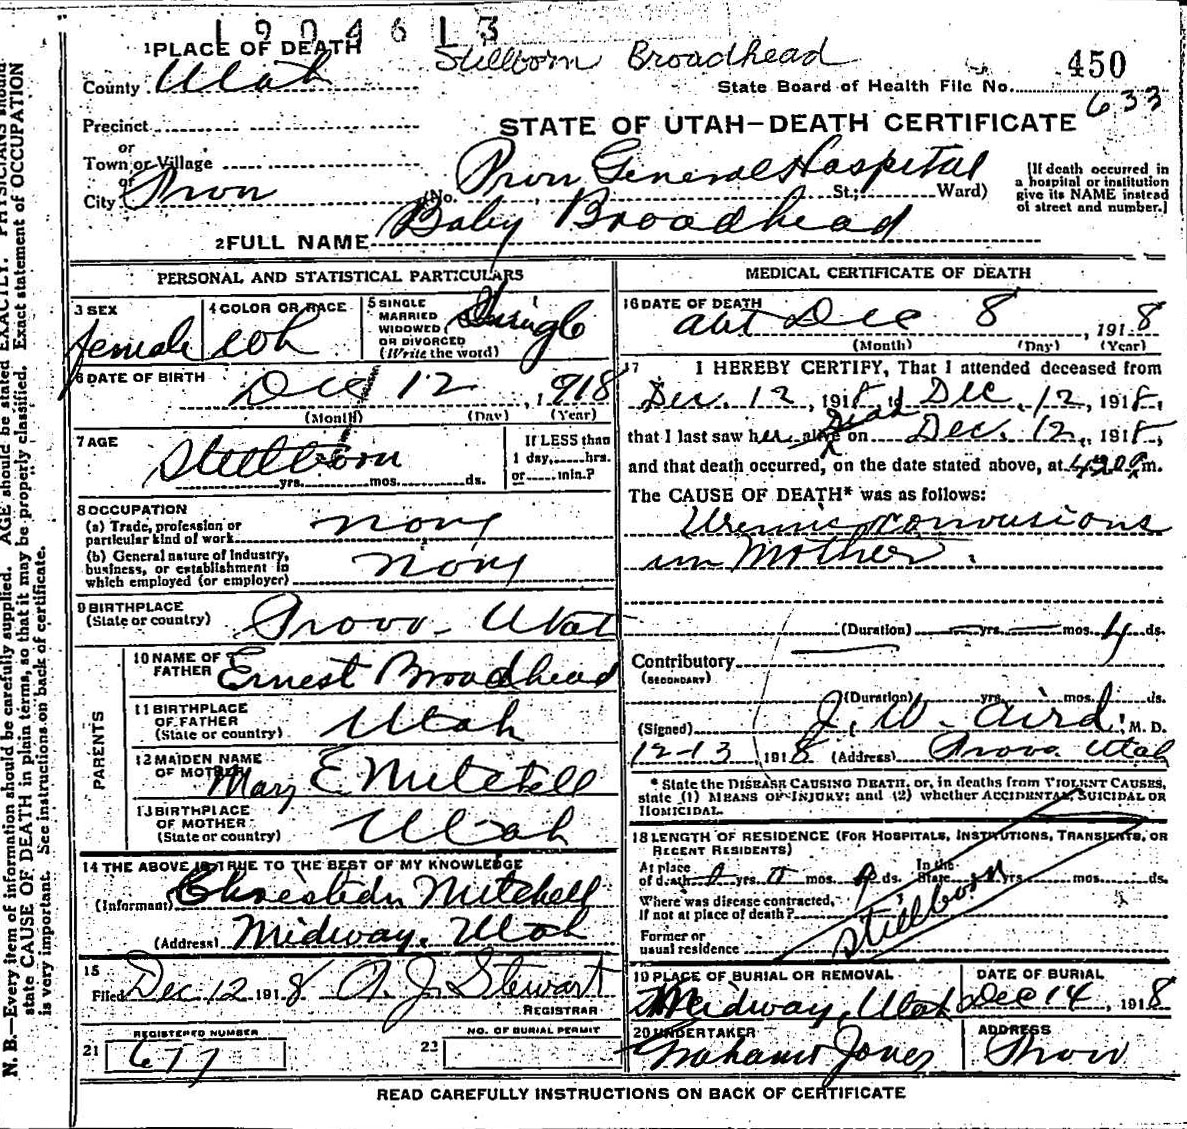 1904613
1 PLACE OF DEATH Stillborn Broadhead
450
County Utah
State Board of Health File No.
633
Precinct
STATE OF UTAH—DEATH CERTIFICATE
or
Town or Village
or
City Provo
(No. Provo General Hospital St.; Ward)
[If death occurred in
a hospital or institution
give its NAME instead
of street and number.]
2 FULL NAME Baby Broadhead
PERSONAL AND STATISTICAL PARTICULARS
3 SEX
female
4 COLOR OR RACE
wh
5 SINGLE
MARRIED
WIDOWED
OR DIVORCED
(Write the word)
Single
6 DATE OF BIRTH
Dec 12, 1918
(Month) (Day) (Year)
7 AGE
Stillborn
yrs. mos. ds.
If LESS than
1 day, hrs.
or min.?
8 OCCUPATION
(a) Trade, profession or
particular kind of work
none
(b) General nature of Industry,
business, or establishment in
which employed (or employer)
none
9 BIRTHPLACE
(State or country)
Provo - Utah
PARENTS
10 NAME OF
FATHER
Ernest Broadhead
11 BIRTHPLACE
OF FATHER
(State or country)
Utah
12 MAIDEN NAME
OF MOTHER
Mary E Mitchell
13 BIRTHPLACE
OF MOTHER
(State or country)
Utah
14 THE ABOVE IS TRUE TO THE BEST OF MY KNOWLEDGE
(Informant) Mitchell
(Address) Midway, Utah
15
Filed Dec 12 1918 A. J. Stewart
REGISTRAR
REGISTERED NUMBER
21 677
NO. OF BURIAL PERMIT
22
MEDICAL CERTIFICATE OF DEATH
16 DATE OF DEATH
abt Dec 8, 1918
(Month) (Day) (Year)
17 I HEREBY CERTIFY, That I attended deceased from
Dec. 12, 1918, to Dec 12, 1918,
that I last saw her alive Dead on Dec. 12, 1918,
and that death occurred, on the date stated above, at m.
The CAUSE OF DEATH* was as follows:
Uremic convusions
in Mother.
(Duration) yrs. mos. 4 ds.
Contributory
(SECONDARY)
(Duration) yrs. mos. ds.
(Signed) J. W. Aird, M. D.
12-13, 1918 (Address) Provo Utah
* State the DISEASE CAUSING DEATH, or, in deaths from VIOLENT CAUSES,
state (1) MEANS OF INJURY; and (2) whether ACCIDENTAL, SUICIDAL OR
HOMICIDAL.
18 LENGTH OF RESIDENCE (FOR HOSPITALS, INSTITUTIONS, TRANSIENTS, OR
RECENT RESIDENTS)
At place
of death yrs. mos. ds.
In the
State yrs. mos. ds.
Where was disease contracted,
If not at place of death?
Former or
usual residence
Stillborn
19 PLACE OF BURIAL OR REMOVAL
Midway, Utah
DATE OF BURIAL
Dec 14, 1918
20 UNDERTAKER
Jones
ADDRESS
Provo
READ CAREFULLY INSTRUCTIONS ON BACK OF CERTIFICATE
N. B.—Every item of information should be carefully supplied. AGE should be stated EXACTLY. PHYSICIANS should
state CAUSE OF DEATH in plain terms, so that it may be properly classified. Exact statement of OCCUPATION
is very important. See instructions on back of certificate.